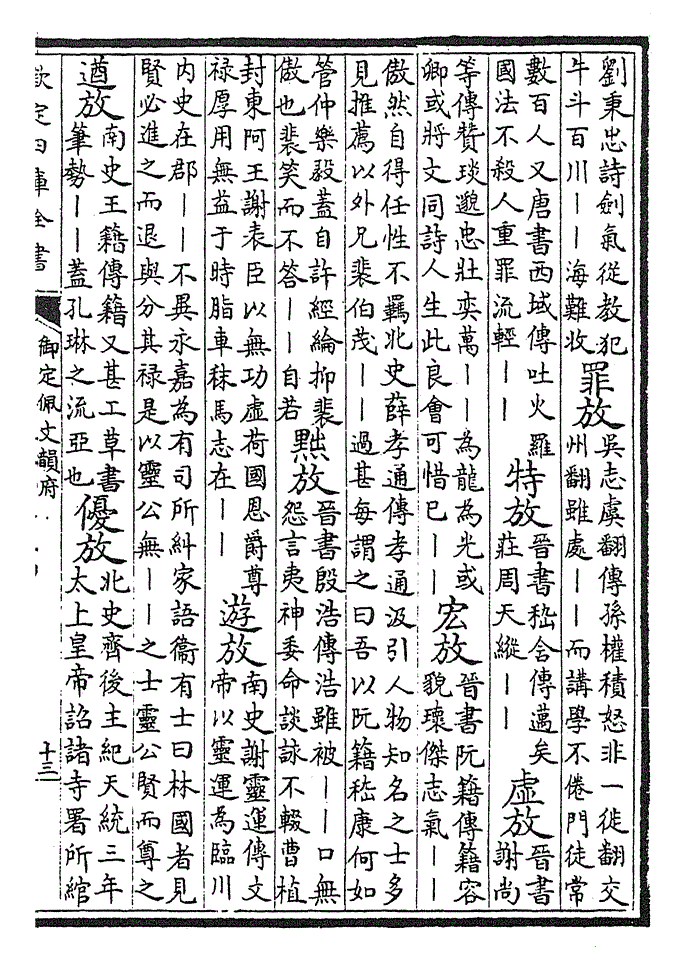 劉秉忠詩劍氣從教犯
牛斗百川——海難收
罪放
吳志虞翻傳孫權積怒非一徙翻交
州翻雖處——而講學不倦門徒常
數百人又唐書西域傳吐火羅
國法不殺人重罪流輕——
特放
晉書嵇含傳邁矣
莊周天縱——
虛放
晉書
謝尚
等傳贊琰邈忠壯奕萬——為龍為光或
卿或將文同詩人生此良會可惜已——
宏放
晉書阮籍傳籍容
貌瓌傑志氣——
傲然自得任性不羈北史薛孝通傳孝通汲引人物知名之士多
見推薦以外兄裴伯茂——過甚每謂之曰吾以阮籍嵇康何如
管仲樂毅蓋自許經綸抑裴
傲也裴笑而不答——自若
黜放
晉書殷浩傳浩雖被——口無
怨言夷神委命談詠不輟曹植
封東阿王謝表臣以無功虛荷國恩爵尊
祿厚用無益于時脂車秣馬志在——
遊放
南史謝靈運傳文
帝以靈運為臨川
內史在郡——不異永嘉為有司所糾家語衞有士曰林國者見
賢必進之而退與分其祿是以靈公無——之士靈公賢而尊之
遒放
南史王籍傳籍又甚工草書
筆勢——蓋孔琳之流亞也
優放
北史齊後主紀天統三年
太上皇帝詔諸寺署所綰
欽定四庫全書
御定佩文韻府
十三